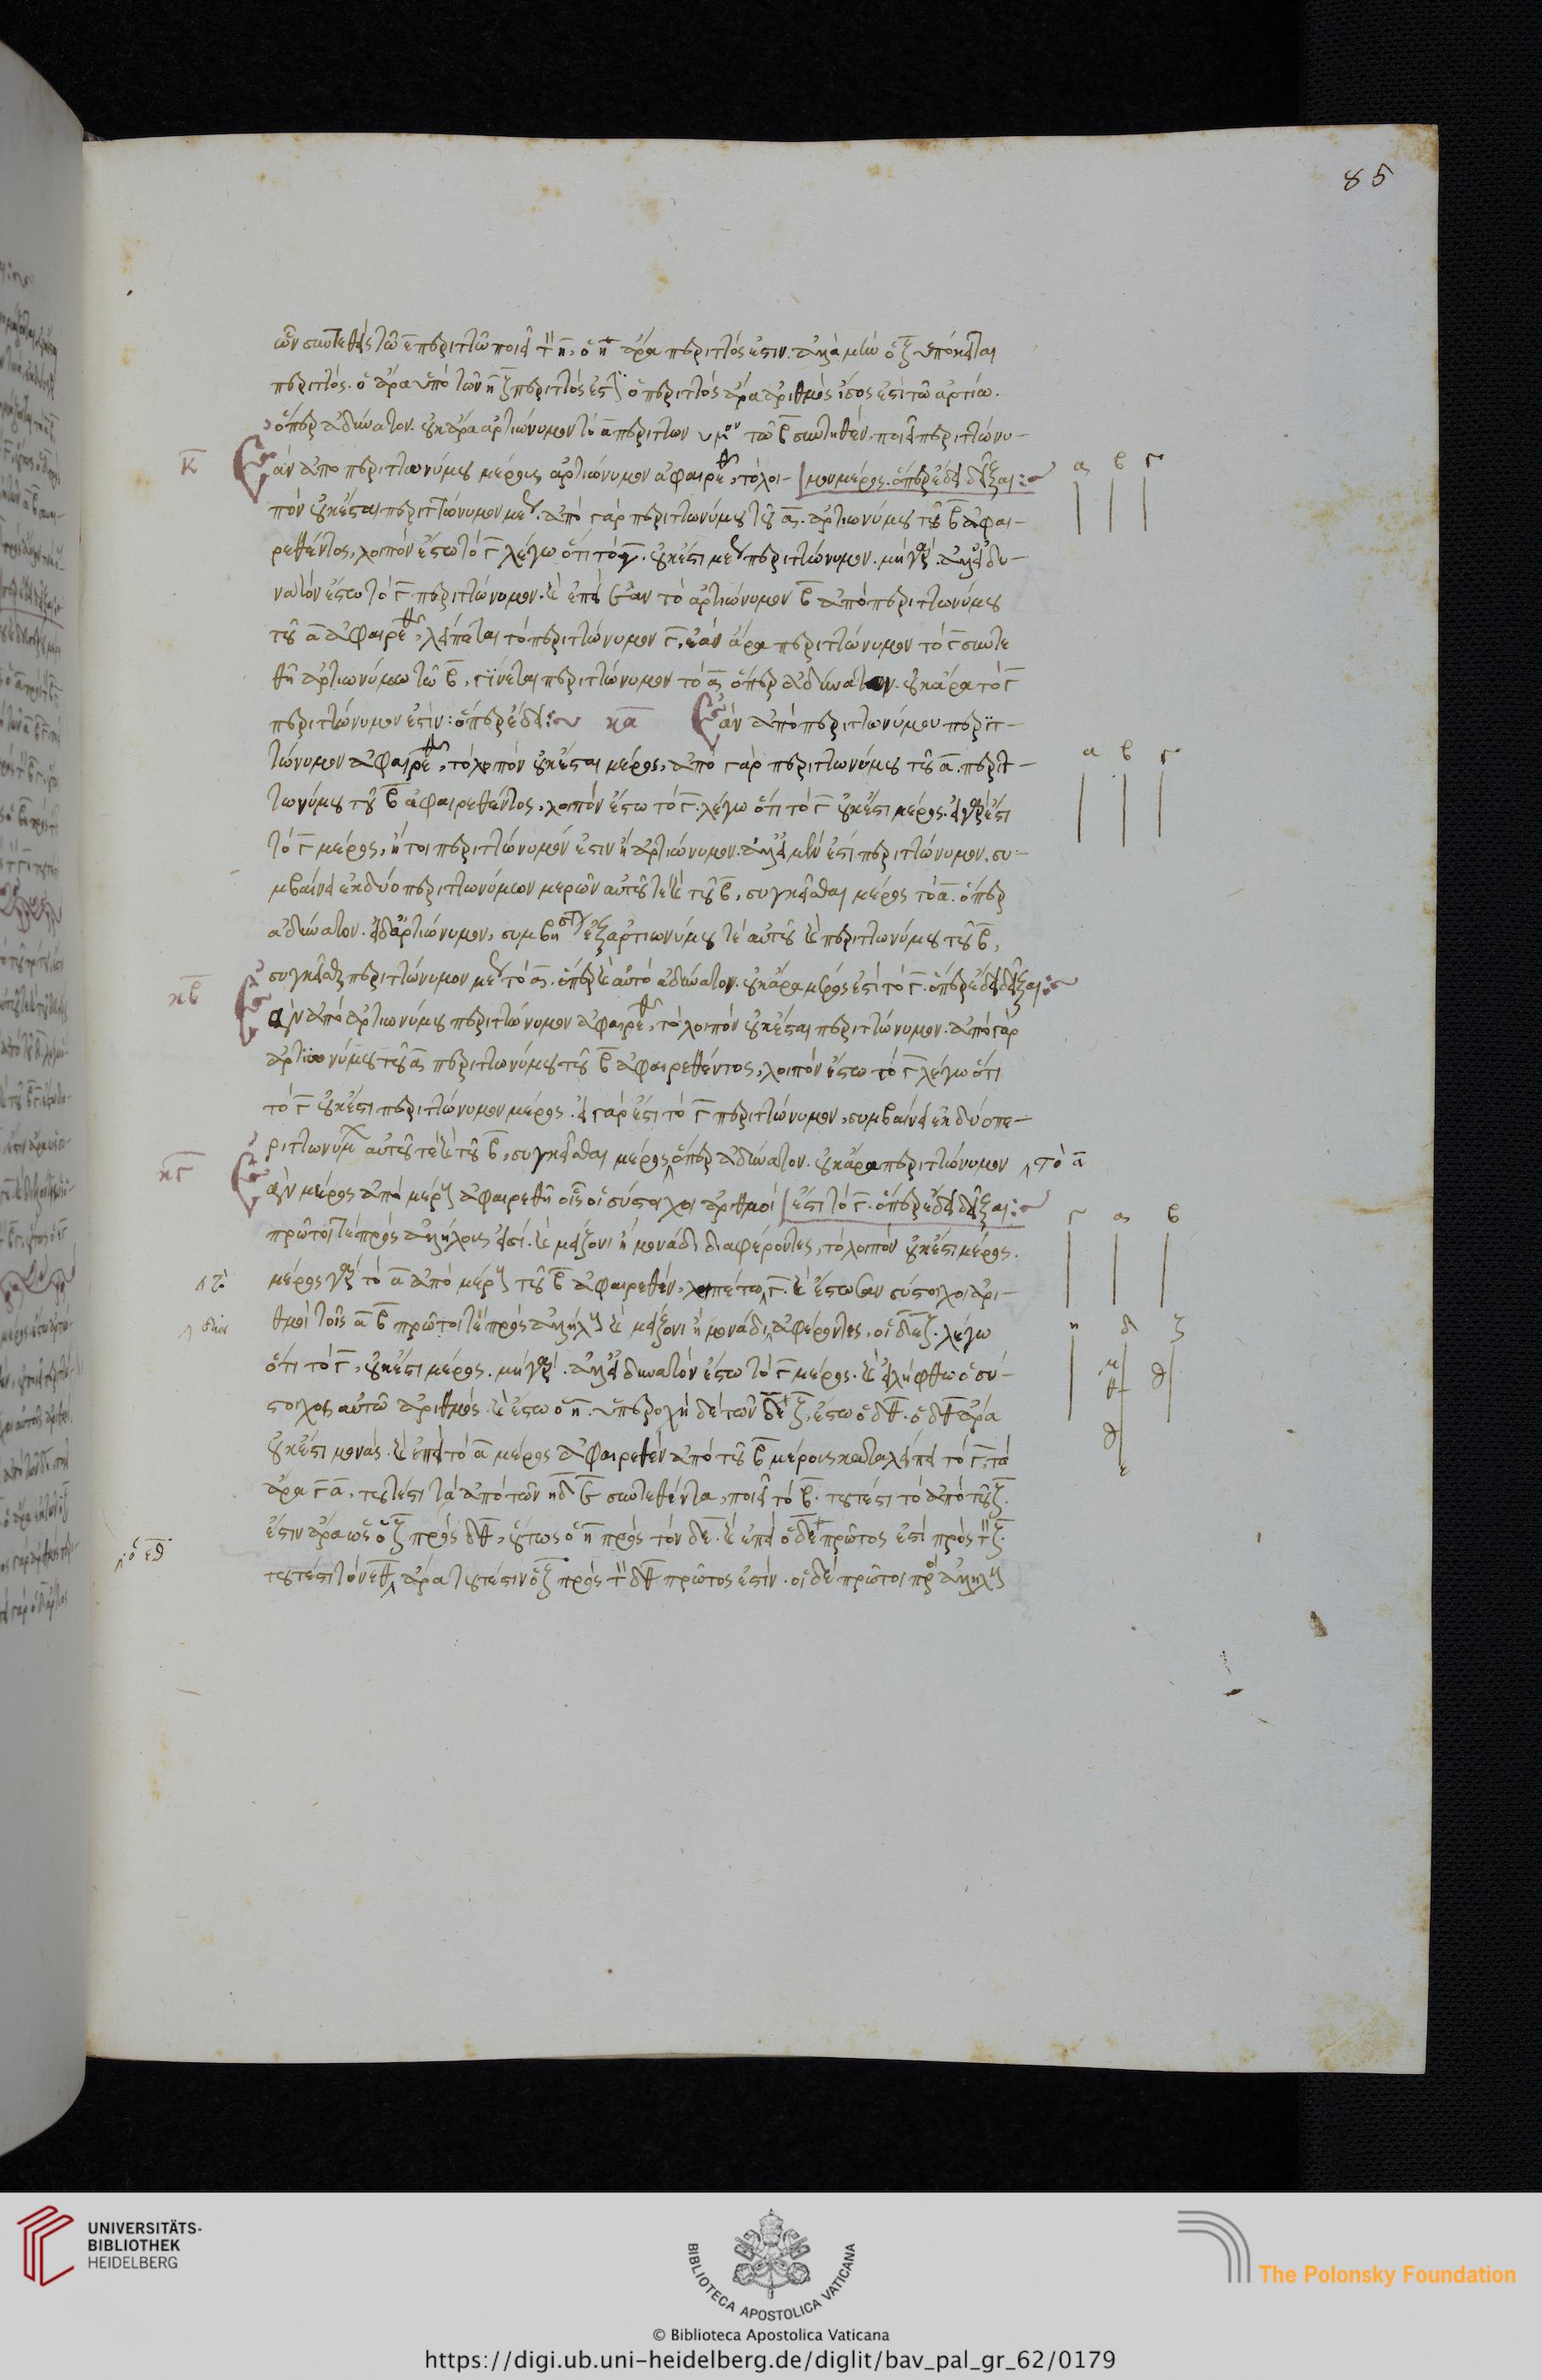 85
ὢν συντεθεὶς τῶ ε περιττῶ ποιεῖ τὸν η, ὁ η ἄρα περιττός ἐστιν. ἀλλὰ μὴν ὁ ζ ὑπόκειται
περιττός. ὁ ἄρα ὑπὸ τῶν η ζ περιττός ἐστιν ὁ περιττὸς ἄρα ἀριθμὸς ἴσος ἐστὶ τῶ αρτίω.
ὅπερ ἀδύνατον. οὐκ ἄρα ἀρτιώνυμον τὸ α περιττων τῶ β συντιθὲν, ποιεῖ περιττώνυ-
κ Ἐὰν ἀπο περιττωνύμου μέρους ἀρτιώνυμον ἀφαιρεθῆ, τὸ λοι- μον μέρος. ὅπερ ἔδει δεῖξαι:~
α β γ
πὸν οὐκ ἔσται περιττώνυμον μέρος. ἀπὸ γὰρ περιττωνύμου τοῦ α. ἀρτιωνύμου τοῦ β ἀφαι-
ρεθέντος, λοιπὸν ἔστω τὸ γ λέγω ὅτι τὸ γ. οὐκ ἔστι μέρος περιττώνυμον. μὴ γὰρ. ἀλλ' εἰ δυ-
νατὸν ἔστω τὸ γ περιττώνυμον. καὶ ἐπεὶ ἐὰν τὸ ἀρτιώνυμον β ἀπὸ περιττωνύμου
τοῦ α ἀφαιρεθῆ, λείπεται τὸ περιττώνυμον γ, ἐὰν ἄρα περιττώνυμον τὸ γ συντε
θῆ ἀρτιωνύμω τῶ β, γίνεται περιττώνυμον τὸ α ὅπερ ἀδύνατον. οὐκ ἄρα τὸ γ
περιττώνυμον ἐστίν: ὅπερ ἔδει:~ κα Ἐὰν ἀπὸ περιττωνύμου περιτ-
τώνυμον ἀφαιρεθῆ, τὸ λοιπὸν οὐκ ἔσται μέρος, ἀπὸ γὰρ περιττωνύμου τοῦ α. περιτ-
α β γ
τωνύμου τοῦ β ἀφαιρεθέντος, λοιπὸν ἔστω τὸ γ. λέγω ὅτι τὸ γ οὐκ ἔστι μέρος. εἰ γὰρ ἐστι
τὸ γ μέρος, ἤτοι περιττώνυμόν ἐστιν ἢ ἀρτιώνυμον. ἀλλ' εἰ μὲν ἐστὶ περιττώνυμον. συ-
μβαίνει ἐκ δύο περιττωνύμων μερῶν αὐτοῦ τε καὶ τοῦ β, συγκεῖσθαι μέρος τὸ α. ὅπερ
ἀδύνατον. εἰ δ' ἀρτιώνυμον, συμβήσεται ἐξ ἀρτιωνύμου τὲ αὐτοῦ καὶ περιττωνύμου τοῦ β,
συγκεῖσθαι περιττώνυμον μέρος τὸ α. ὅπερ καὶ αὐτὸ ἀδύνατον. οὐκ ἄρα μέρος ἐστὶ τὸ γ. ὅπερ ἔδει δεῖξαι:~
κβ Ἐὰν ἀπὸ ἀρτιωνύμου περιττώνυμον ἀφαιρεθῆ, τὸ λοιπὸν οὐκ ἔσται περιττώνυμον. ἀπὸ γὰρ
ἀρτιωνύμου τοῦ α περιττωνύμου τοῦ β ἀφαιρεθέντος, λοιπὸν ἔστω τὸ γ λέγω ὅτι
τὸ γ οὐκ ἔστι περιττώνυμον μέρος. εἰ γὰρ ἐστι τὸ γ περιττώνυμον, συμβαίνει ἐκ δύο πε-
ριττωνύμων αὐτοῦ τὲ καὶ τοῦ β, συγκεῖσθαι μέρος ὅπερ ἀδύνατον. οὐκ ἄρα περιττώνυμον τὸ α
κγ Ἐὰν μέρος ἀπὸ μέρους ἀφαιρεθῆ οἷς οἱ σύστοιχοι ἀριθμοί ἐστι τὸ γ. ὅπερ ἔδει δεῖξαι:~
πρῶτοί τὲ πρὸς ἀλλήλους εἰσί. καὶ μείζονι ἢ μονάδι διαφέροντες, τὸ λοιπὸν οὐκ ἔστι μέρος.
γ α β
μέρος γὰρ τὸ α ἀπὸ μέρους τοῦ β ἀφαιρεθὲν, λοιπέτω γ. καὶ ἔστωσαν σύστοιχοι ἀρι-
τὸ
θμοὶ τοῖς α β πρῶτοί τὲ πρὸς ἀλλήλους καὶ μείζονι ἢ μονάδι ἀφέροντες, οἱ δε ζ. λέγω
η δ ζ
ὅτι τὸ γ, οὐκ ἔστι μέρος. μὴ γὰρ. ἀλλ' εἰ δυνατὸν ἔστω τὸ γ μέρος. καὶ εἰλήφθω ὁ σύ-
στοιχος αὐτῶ ἀριθμός. καὶ ἔστω ὁ η. ὑπεροχὴ δὲ τῶν δε ζ, ἔστω ὁ δθ. ὁ δθ ἄρα
οὐκ ἔστι μονάς. καὶ ἐπεὶ τὸ α μέρος ἀφαιρεθὲν ἀπὸ τοῦ β μέρους καταλείπει τὸ γ, τὰ
ἄρα γ α, τουτέστι τὰ ἀπὸ τῶν η δε συντεθέντα, ποιεῖ τὸ β. τουτέστι τὸ ἀπὸ τοῦ ζ.
ἔστιν ἄρα ὡς ὁ ζ πρὸς δθ, οὕτως ὁ η πρὸς τὸν δε. καὶ ἐπεὶ ὁ δε πρῶτος ἐστὶ πρὸς τὸν ζ.
ὁ εθ
τουτέστι τὸν εθ ἄρα τουτέστιν ὁ ζ πρὸς τὸν δθ πρῶτος ἐστίν. οἱ δὲ πρῶτοι πρὸς ἀλλήλους
UNIVERSITÄTS-
BIBLIOTHEK
HEIDELBERG
BIBLIOTECA APOSTOLICA VATICANA
The Polonsky Foundation
© Biblioteca Apostolica Vaticana
https://digi.ub.uni-heidelberg.de/diglit/bav_pal_gr_62/0179